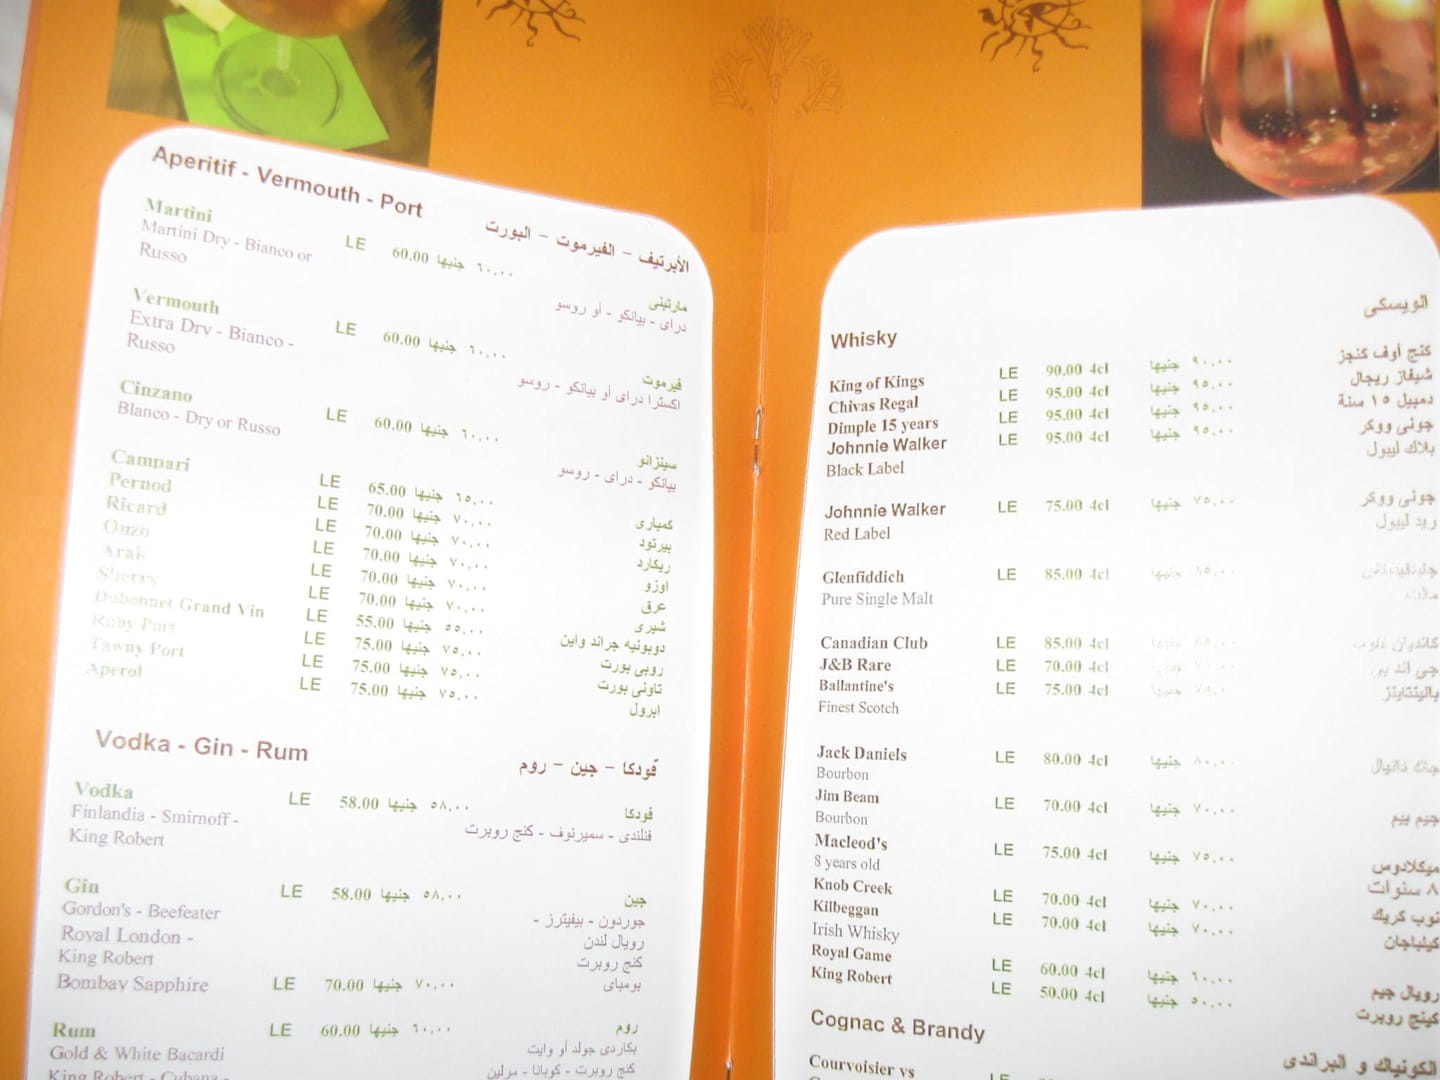 Aperitif - Vermouth - Port
الأبرتيف - الفيرموت - البورت
Martini LE 60.00 جنيها ٦٠,٠٠ مارتينى
Martini Dry - Bianco or دراى - بيانكو - أو روسو
Russo
Vermouth LE 60.00 جنيها ٦٠,٠٠ فيرموت
Extra Dry - Bianco - اكسترا دراى أو بيانكو - روسو
Russo
Cinzano LE 60.00 جنيها ٦٠,٠٠ سينزانو
Bianco - Dry or Russo بيانكو - دراى - روسو
Campari LE 65.00 جنيها ٦٥,٠٠ كمبارى
Pernod LE 70.00 جنيها ٧٠,٠٠ بيرنود
Ricard LE 70.00 جنيها ٧٠,٠٠ ريكارد
Ouzo LE 70.00 جنيها ٧٠,٠٠ اوزو
Arak LE 70.00 جنيها ٧٠,٠٠ عرق
Sherry LE 70.00 جنيها ٧٠,٠٠ شيرى
Dubonnet Grand Vin LE 55.00 جنيها ٥٥,٠٠ دوبونيه جراند واين
Ruby Port LE 75.00 جنيها ٧٥,٠٠ روبى بورت
Tawny Port LE 75.00 جنيها ٧٥,٠٠ تاونى بورت
Aperol LE 75.00 جنيها ٧٥,٠٠ ابرول
Vodka - Gin - Rum
ڤودكا - جين - روم
Vodka LE 58.00 جنيها ٥٨,٠٠ فودكا
Finlandia - Smirnoff - فنلندى - سميرنوف - كنج روبرت
King Robert
Gin LE 58.00 جنيها ٥٨,٠٠ جين
Gordon's - Beefeater جوردون - بيفيترز -
Royal London - رويال لندن
King Robert كنج روبرت
Bombay Sapphire LE 70.00 جنيها ٧٠,٠٠ بومباى
Rum LE 60.00 جنيها ٦٠,٠٠ روم
Gold & White Bacardi بكاردى جولد أو وايت
King Robert - Cubana - كنج روبرت - كوبانا - مرلين
الويسكى
Whisky
King of Kings LE 90.00 4cl جنيها ٩٠,٠٠ كنج أوف كنجز
Chivas Regal LE 95.00 4cl جنيها ٩٥,٠٠ شيفاز ريجال
Dimple 15 years LE 95.00 4cl جنيها ٩٥,٠٠ دمبيل ١٥ سنة
Johnnie Walker LE 95.00 4cl جنيها ٩٥,٠٠ جونى ووكر
Black Label بلاك ليبول
Johnnie Walker LE 75.00 4cl جنيها ٧٥,٠٠ جونى ووكر
Red Label ريد ليبول
Glenfiddich LE 85.00 4cl جنيها ٨٥,٠٠
Pure Single Malt مالت
Canadian Club LE 85.00 4cl جنيها كاناديان
J&B Rare LE 70.00 4cl جنيها ٧٠,٠٠ جى اند بى
Ballantine's LE 75.00 4cl جنيها ٧٥,٠٠ بالينتاينز
Finest Scotch
Jack Daniels LE 80.00 4cl جنيها ٨٠,٠٠ جاك دانيال
Bourbon
Jim Beam LE 70.00 4cl جنيها ٧٠,٠٠ جيم بيم
Bourbon
Macleod's LE 75.00 4cl جنيها ٧٥,٠٠ ميكلادوس
8 years old ٨ سنوات
Knob Creek LE 70.00 4cl جنيها ٧٠,٠٠ نوب كريك
Kilbeggan LE 70.00 4cl جنيها ٧٠,٠٠ كيلباجان
Irish Whisky
Royal Game LE 60.00 4cl جنيها ٦٠,٠٠ رويال جيم
King Robert LE 50.00 4cl جنيها ٥٠,٠٠ كينج روبرت
Cognac & Brandy
الكونياك و البراندى
Courvoisier vs LE